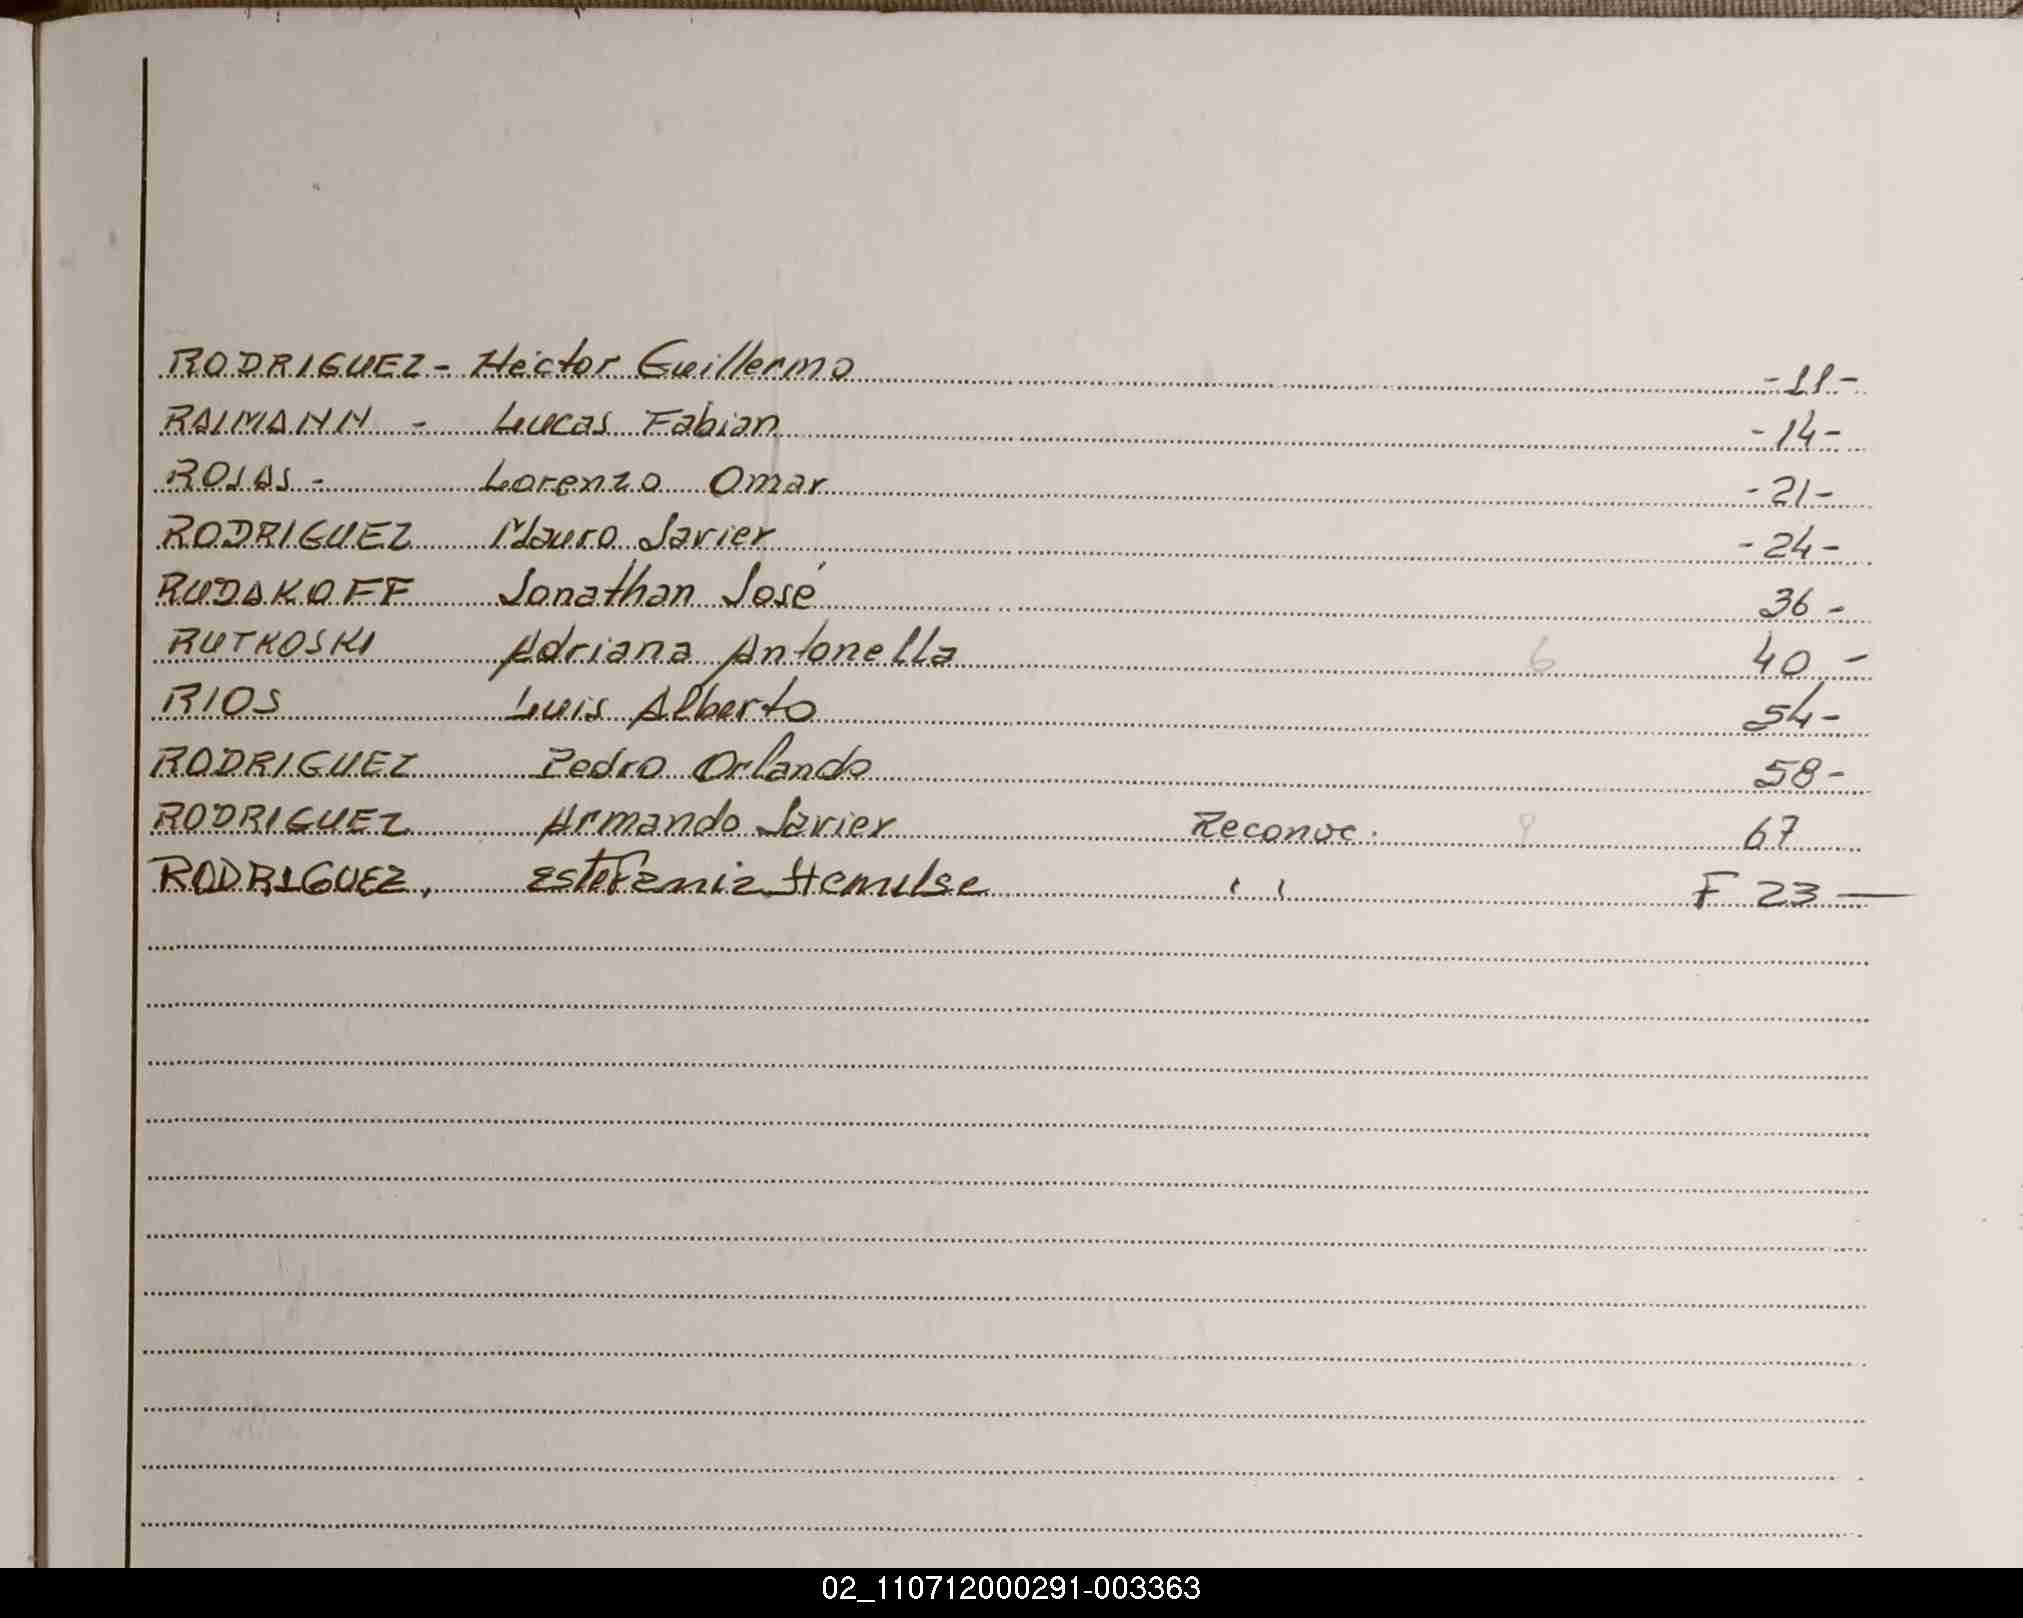 RODRIGUEZ - Héctor Guillermo -11-
RAIMANN - Lucas Fabian -14-
ROJAS - Lorenzo Omar -21-
RODRIGUEZ Mauro Javier -24-
RUDAKOFF Jonathan José 36-
RUTKOSKI Adriana Antonella 6 40-
RIOS Luis Alberto 54-
RODRIGUEZ Pedro Orlando 58-
RODRIGUEZ Armando Javier Reconoc. 67
RODRIGUEZ, Estefania Hemilse ' ' F 23 —
02_110712000291-003363